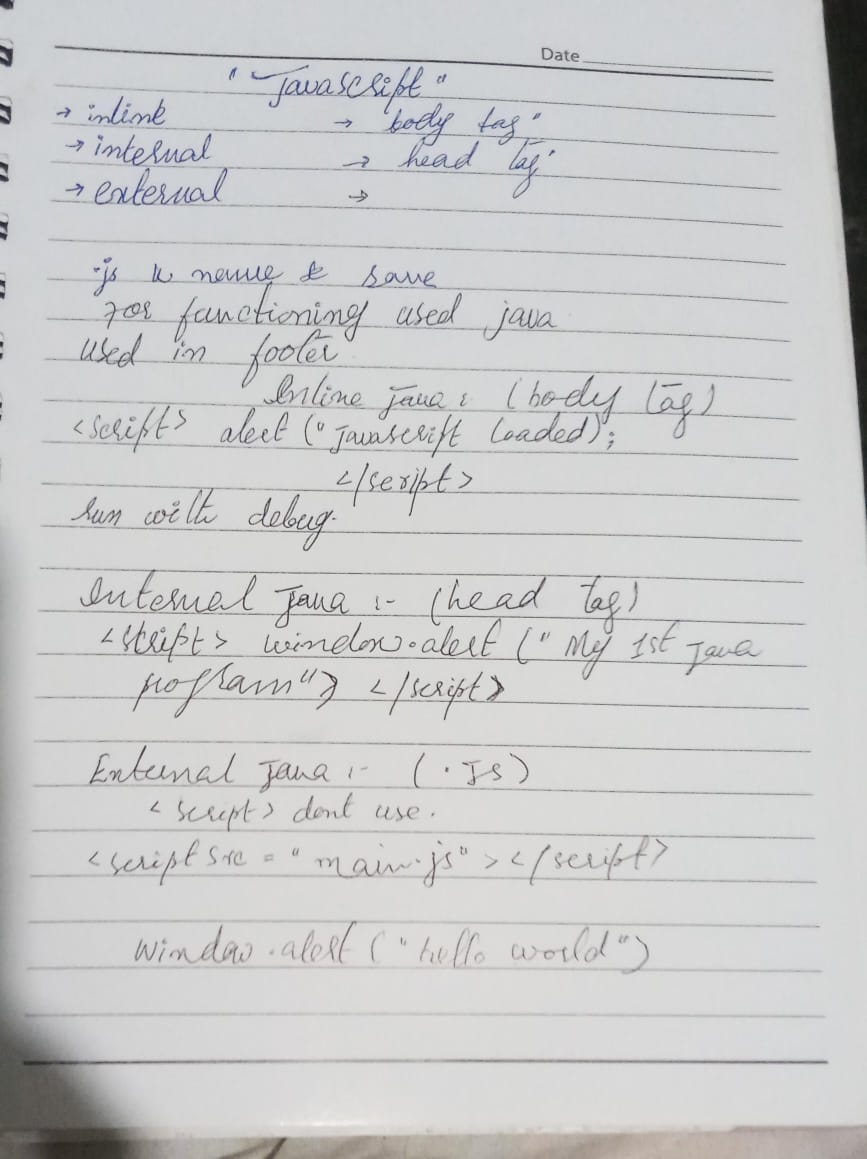 Date
" Javascript "
→ inlink → body tag"
→ internal → head tag"
→ external →
.js k name & save
For functioning used java
used in footer
Inline java : (body tag)
<script> alert ("javascript loaded);
</script>
run with debug.
Internal java :- (head tag)
<script> window.alert (" My 1st java
program") </script>
External java :- (.js)
<script> dont use.
<script src = "main.js"></script>
window.alert ("hello world")